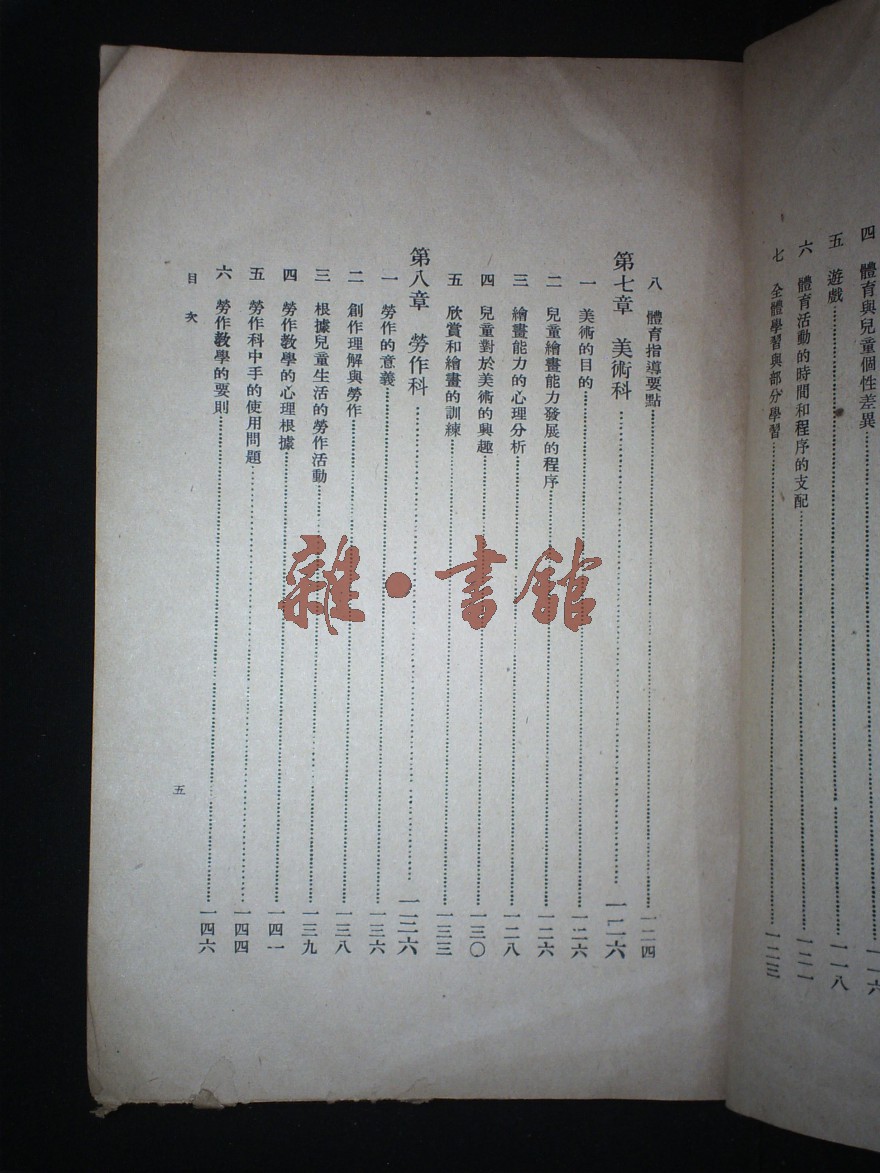 四 體育與兒童個性差異⋯⋯一一六
五 遊戲⋯⋯一一八
六 體育活動的時間和程序的支配⋯⋯一二一
七 全體學習與部分學習⋯⋯一二三
八 體育指導要點⋯⋯一二四
第七章 美術科⋯⋯一二六
一 美術的目的⋯⋯一二六
二 兒童繪畫能力發展的程序⋯⋯一二六
三 繪畫能力的心理分析⋯⋯一二八
四 兒童對於美術的興趣⋯⋯一三〇
五 欣賞和繪畫的訓練⋯⋯一三三
第八章 勞作科⋯⋯一三六
一 勞作的意義⋯⋯一三六
二 創作理解與勞作⋯⋯一三八
三 根據兒童生活的勞作活動⋯⋯一三九
四 勞作教學的心理根據⋯⋯一四一
五 勞作科中手的使用問題⋯⋯一四四
六 勞作教學的要則⋯⋯一四六
目次 五
雜·書館